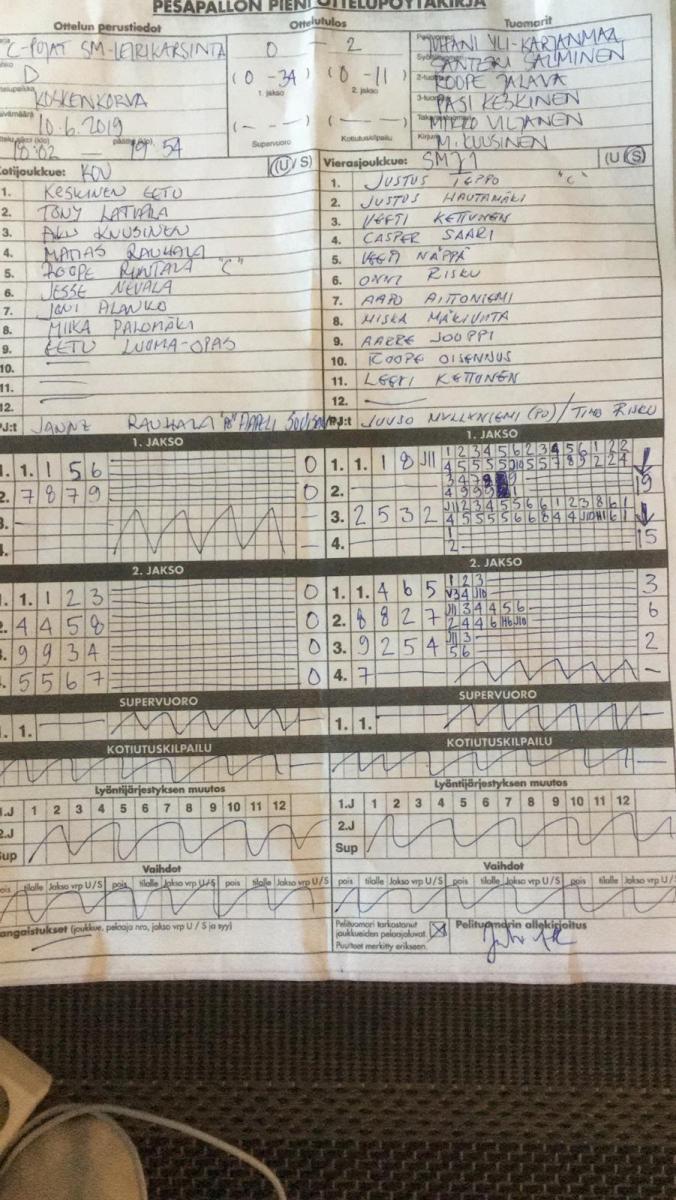 PESÄPALLON PIENI OTTELUPÖYTÄKIRJA
Ottelun perustiedot Ottelutulos Tuomarit
C-POJAT SM-LEIRIKARSINTA 0 - 2 JUHANI YLI-KARJANMAA
SANTERI SALMINEN
D (0 - 34) (0 - 11) ROOPE JALAVA
1. jakso 2. jakso
KOSKENKORVA PASI KESKINEN
10.6.2019 (- - -) (- - -) MIKKO VILJANEN
18:02 - 19:54 Supervuoro Kotiutuskilpailu M. KUUSINEN
Kotijoukkue: KOU (U/S) Vierasjoukkue: SMJJ (U/S)
1. KESKINEN EETU 1. JUSTUS TEPPO "C"
2. TONY LATVALA 2. JUSTUS HAUTAMÄKI
3. AKU KUUSINEN 3. VEETI KETTUNEN
4. MATIAS RAUHALA 4. CASPER SAARI
5. ROOPE RINTALA "C" 5. VEETI NÄPPÄ
6. JESSE NEVALA 6. ONNI RISKU
7. JONI ALANKO 7. AAPO AITTONIEMI
8. MIIKA PALOMÄKI 8. MISKA MÄKIVIITA
9. EETU LUOMA-OPAS 9. AARRE JOOPPI
10. 10. ROOPE OISENNUS
11. 11. LEEVI KETTUNEN
12. 12.
PJ:t JANNE RAUHALA PJ:t JUUSO MYLLYNIEMI (PJ) / TIMO RISKU
1. JAKSO 1. JAKSO
1. 1. 1 5 6 0 1. 1. 1 8 J11 1 2 3 4 5 6 2 3 4 5 6 1 2 2
2. 7 8 7 9 0 2. 19
3. 3. 2 5 3 2
4. 4. 15
2. JAKSO 2. JAKSO
1. 1. 1 2 3 0 1. 1. 4 6 5 1 2 3 3
2. 4 4 5 8 0 2. 8 8 2 7 J11 3 4 4 5 6 6
3. 9 9 3 4 0 3. 9 2 5 4 J11 3 2
5 6
4. 5 5 6 7 0 4. 7 -
SUPERVUORO SUPERVUORO
1. 1. 1. 1.
KOTIUTUSKILPAILU KOTIUTUSKILPAILU
Lyöntijärjestyksen muutos Lyöntijärjestyksen muutos
1.J 1 2 3 4 5 6 7 8 9 10 11 12 1.J 1 2 3 4 5 6 7 8 9 10 11 12
2.J 2.J
Sup Sup
Vaihdot Vaihdot
pois tilalle Jakso vrp U/S pois tilalle Jakso vrp U/S pois tilalle Jakso vrp U/S pois tilalle Jakso vrp U/S pois tilalle Jakso vrp U/S pois tilalle Jakso vrp U/S
Rangaistukset (joukkue, pelaaja nro, jakso vrp U / S ja syy) Pelituomari tarkastanut Pelituomarin allekirjoitus
joukkueiden pelaajaluvat.
Puutteet merkitty erikseen.